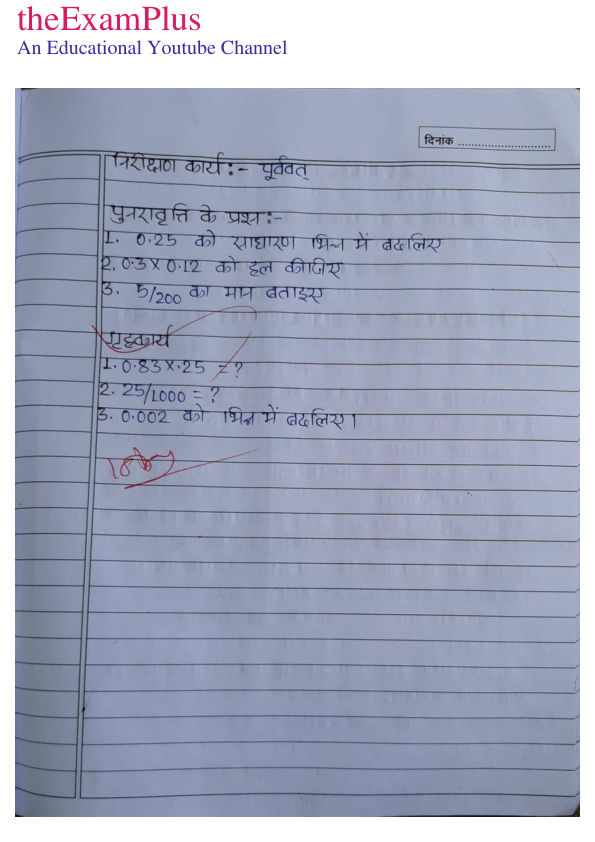 theExamPlus
An Educational Youtube Channel
दिनांक ............................
निरीक्षण कार्य :- पूर्ववत्
पुनरावृत्ति के प्रश्न :-
1. 0.25 को साधारण भिन्न में बदलिए
2. 0.3 x 0.12 को हल कीजिए
3. 5/200 का मान बताइए
गृहकार्य
1. 0.83 x .25 = ?
2. 25/1000 = ?
3. 0.002 को भिन्न में बदलिए।